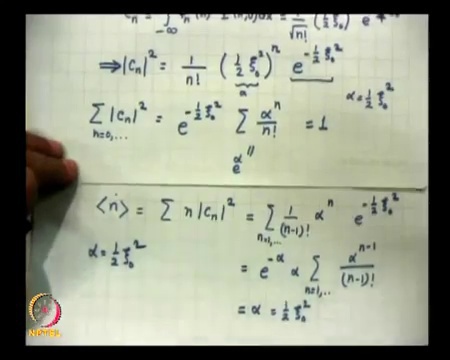 cₙ = ∫ -∞ dx = 1/√n! (½ξ₀²) e
⟹ |cₙ|² = 1/n! (½ξ₀²)ⁿ e^(-½ξ₀²)
α α = ½ξ₀²
Σ_(n=0,...) |cₙ|² = e^(-½ξ₀²) Σ αⁿ/n! = 1
e^α ″
⟨n⟩ = Σ n |cₙ|² = Σ_(n=1,...) 1/(n-1)! αⁿ e^(-½ξ₀²)
α = ½ξ₀² = e^(-α) α Σ_(n=1,...) α^(n-1)/(n-1)!
= α = ½ξ₀²
NPTEL